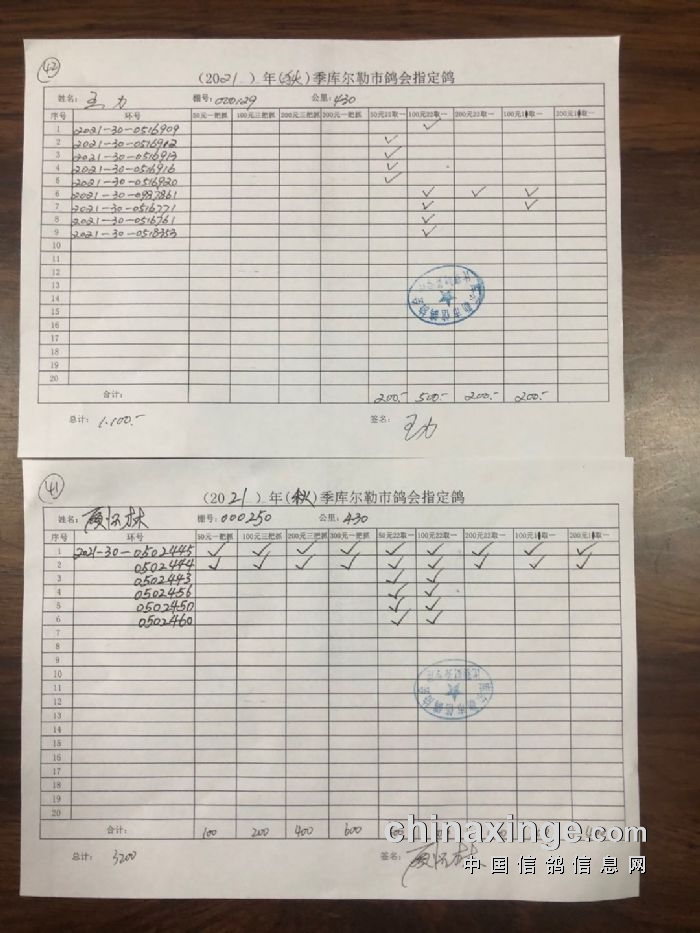 42
（2021）年（秋）季库尔勒市鸽会指定鸽
姓名：王力 棚号：000129 公里：430
序号 环号 50元一把抓 100元三把抓 200元三把抓 300元一把抓 50元22取一 100元22取一 200元22取一 100元1取一 200元1取一
1 2021-30-0516909 ✓
2 2021-30-0516912 ✓
3 2021-30-0516913 ✓
4 2021-30-0516916 ✓
5 2021-30-0516920 ✓
6 2021-30-0987861 ✓ ✓ ✓
7 2021-30-0516771 ✓ ✓
8 2021-30-0516761 ✓
9 2021-30-0518353 ✓
10
11
12
13
14
15
16
17
18
19
20
合计： 200.- 500.- 200.- 200.-
总计：1.100.- 签名：王力
41
（2021）年（秋）季库尔勒市鸽会指定鸽
姓名：顾怀林 棚号：000250 公里：430
序号 环号 50元一把抓 100元三把抓 200元三把抓 300元一把抓 50元22取一 100元22取一 200元22取一 100元1取一 200元1取一
1 2021-30-0502445 ✓ ✓ ✓ ✓ ✓ ✓ ✓ ✓ ✓
2 0502444 ✓ ✓ ✓ ✓ ✓ ✓ ✓ ✓ ✓
3 0502443 ✓ ✓
4 0502456 ✓ ✓
5 0502450 ✓ ✓
6 0502460 ✓ ✓
7
8
9
10
11
12
13
14
15
16
17
18
19
20
合计： 100 200 400 600
总计：3200 签名：顾怀林
chinaxinge.com
中国信鸽信息网